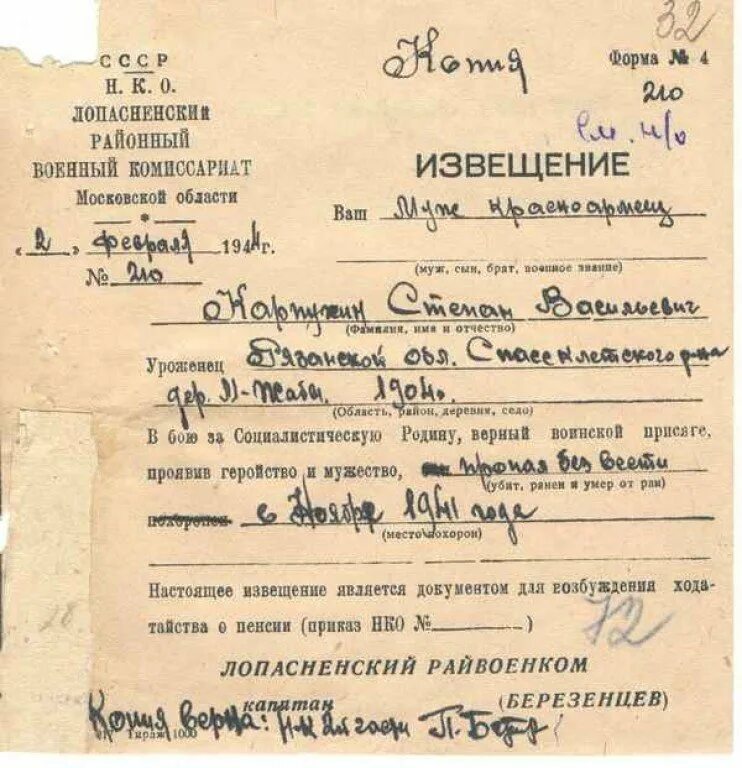 32
СССР
Н. К. О.
ЛОПАСНЕНСКИЙ
РАЙОННЫЙ
ВОЕННЫЙ КОМИССАРИАТ
Московской области
«2» февраля 1944 г.
№ 210
Копия
Форма № 4
210
См. н/о
ИЗВЕЩЕНИЕ
Ваш Муж красноармеец
(муж, сын, брат, военное звание)
Карпухин Степан Васильевич
(Фамилия, имя и отчество)
Уроженец Рязанской обл. Спасс-Клетского р-на
дер. 1904г.
(Область, район, деревня, село)
В бою за Социалистическую Родину, верный воинской присяге,
проявив геройство и мужество, пропал без вести
(убит, ранен и умер от ран)
похоронен с Ноября 1941 года
(место похорон)
Настоящее извещение является документом для возбуждения хода-
тайства о пенсии (приказ НКО №        )
72
ЛОПАСНЕНСКИЙ РАЙВОЕНКОМ
капитан (БЕРЕЗЕНЦЕВ)
Копия верна:
Тираж 1000